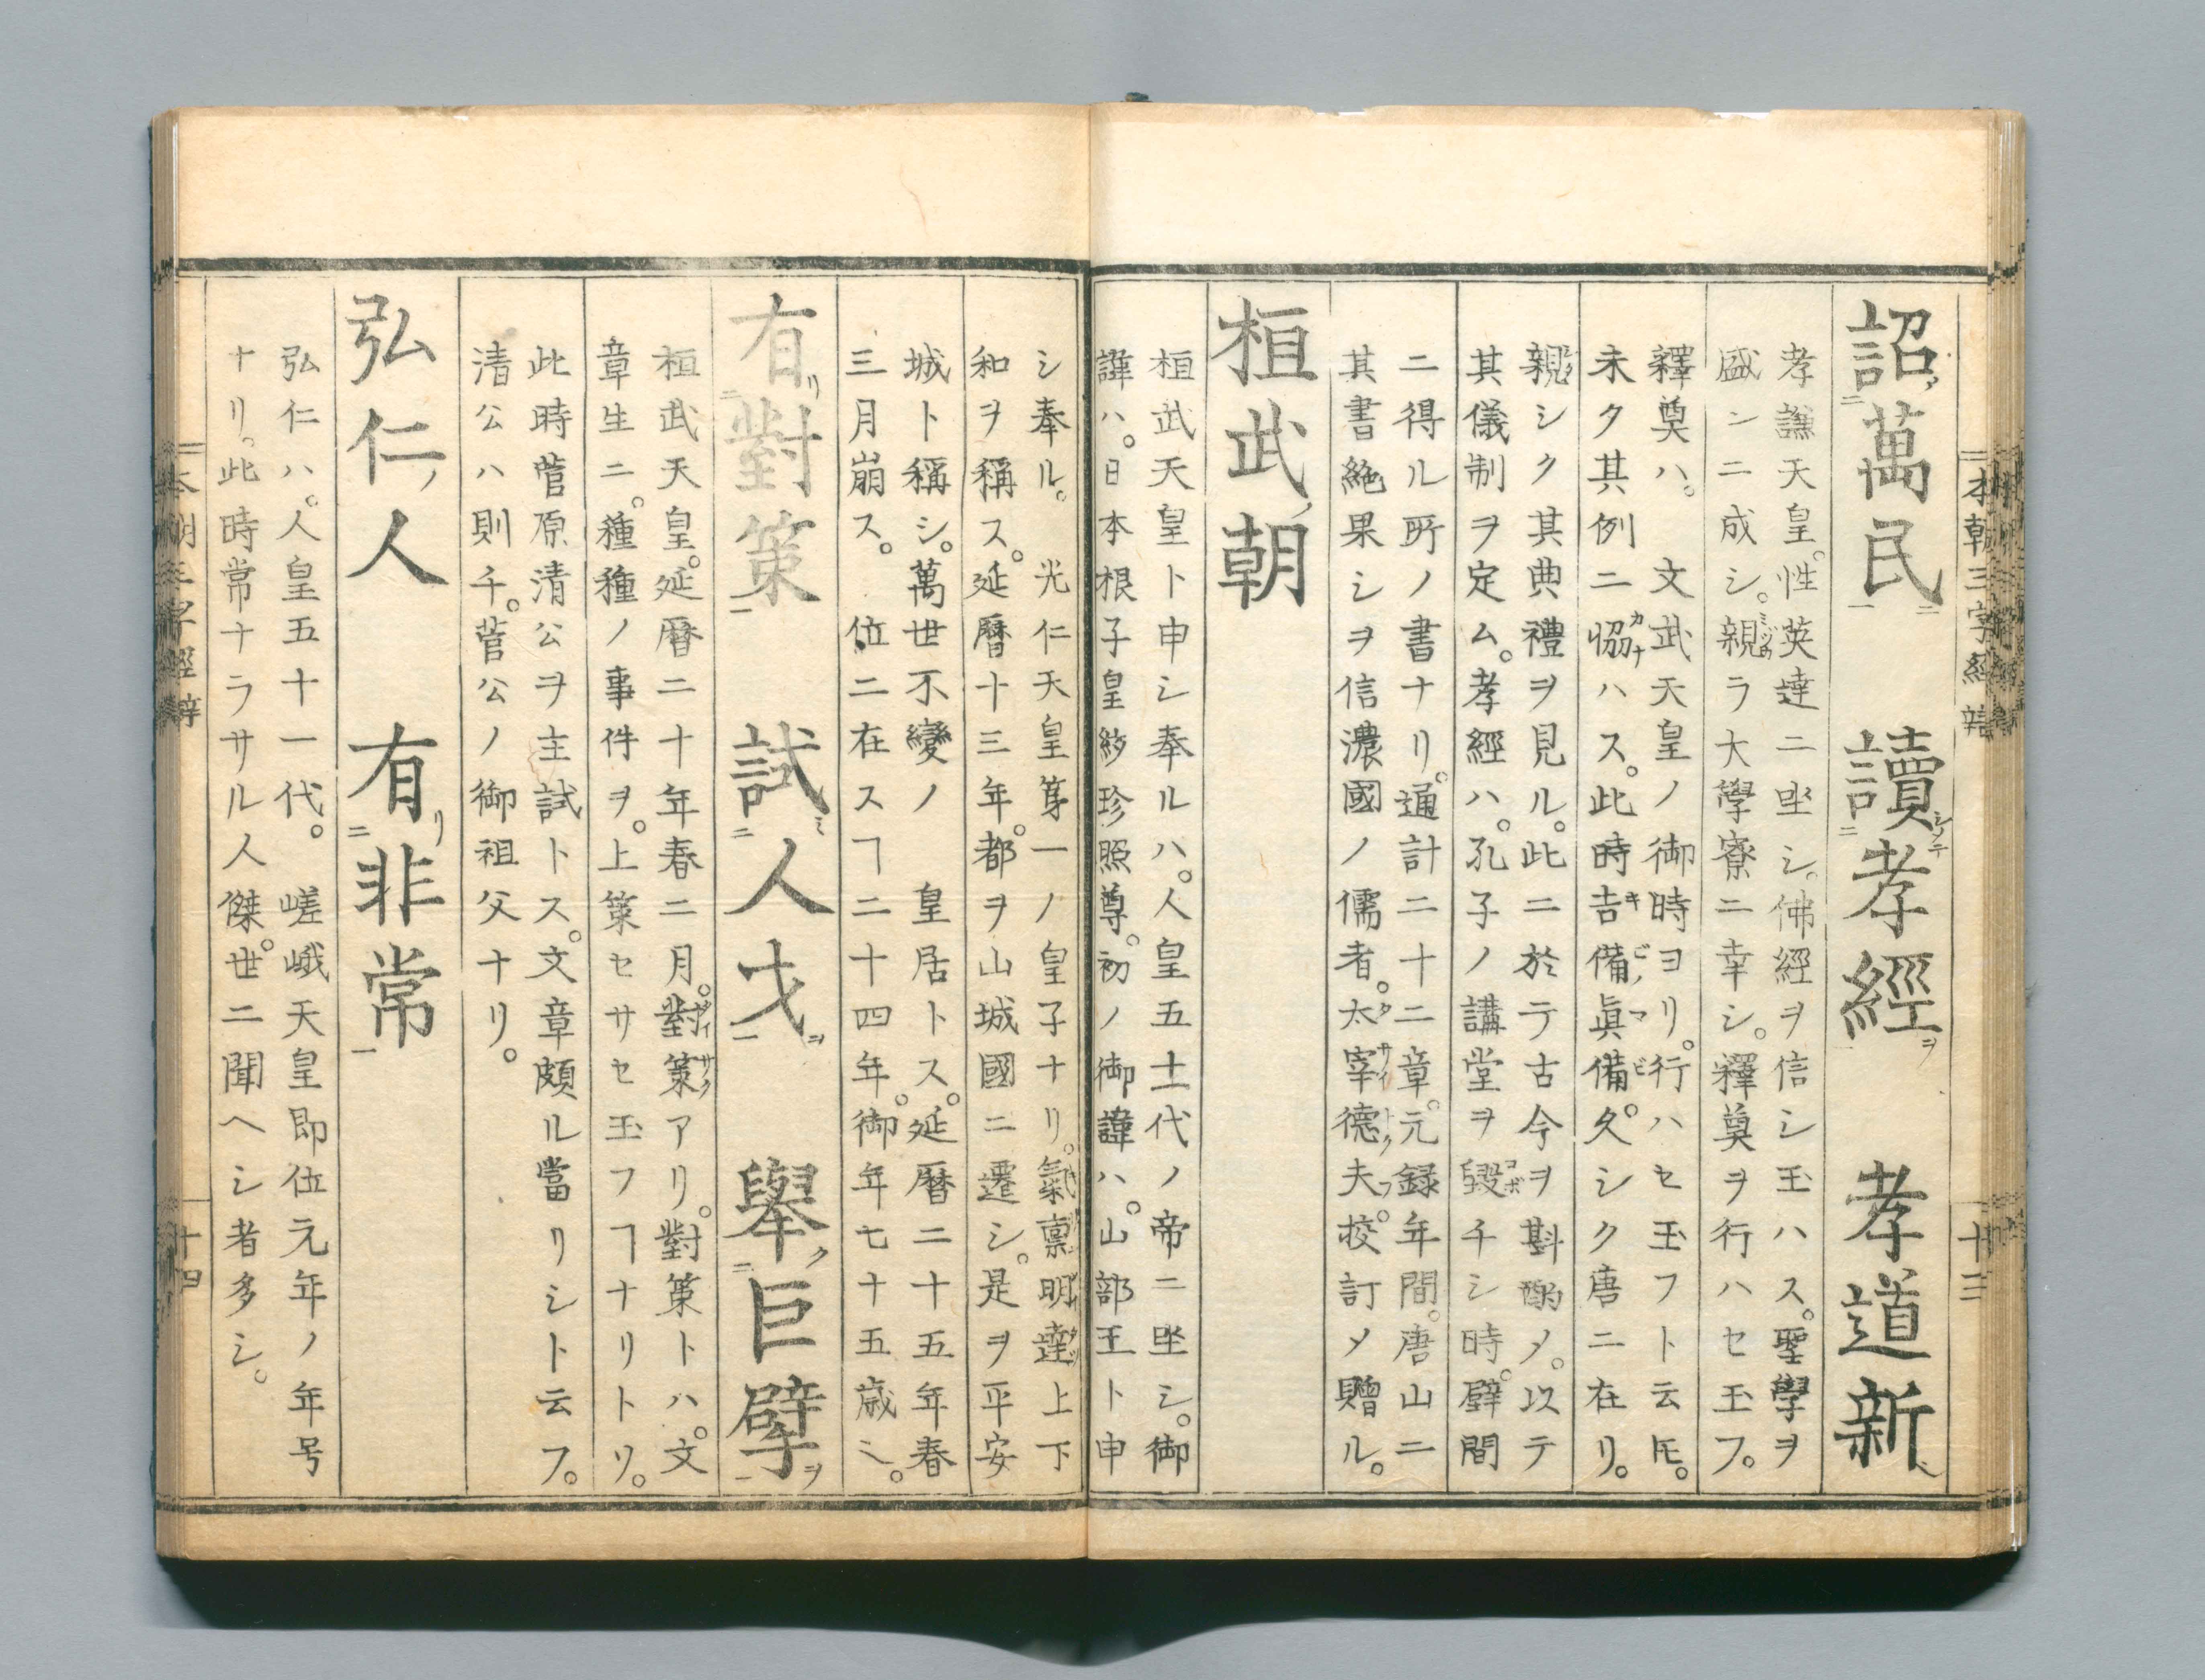 本朝三字經諺 十三
詔萬民 讀孝經 孝道新
孝謙天皇。性英達ニ坐シ。佛經ヲ信シ玉ハス。聖學ヲ
盛ンニ成シ。親ラ大學寮ニ幸シ。釋奠ヲ行ハセ玉フ。
釋奠ハ。 文武天皇ノ御時ヨリ。行ハセ玉フト云𪜈。
未タ其例ニ恊ハス。此時吉備眞備。久シク唐ニ在リ。
親シク其典禮ヲ見ル。此ニ於テ古今ヲ斟酌メ。以テ
其儀制ヲ定ム。孝經ハ。孔子ノ講堂ヲ毀チシ時。壁間
ニ得ル所ノ書ナリ。通計二十二章。元録年間。唐山ニ
其書絶果シヲ信濃國ノ儒者。太宰德夫。挍訂メ贈ル。
桓武朝
桓武天皇ト申シ奉ルハ。人皇五十一代ノ帝ニ坐シ。御
諱ハ。日本根子皇紗珍照尊。初ノ御諱ハ。山部王ト申
シ奉ル。 光仁天皇第一ノ皇子ナリ。氣禀明達上下
和ヲ稱ス。延曆十三年。都ヲ山城國ニ遷シ。是ヲ平安
城ト稱シ。萬世不變ノ 皇居トス。延曆二十五年春
三月崩ス。 位ニ在スヿ二十四年。御年七十五歳ニ。
有對策 試人才 舉巨擘
桓武天皇。延曆二十年春二月。對策アリ。對策トハ。文
章生ニ。種種ノ事件ヲ。上策セサセ玉フヿナリトソ。
此時菅原清公ヲ主試トス。文章頗ル當リシト云フ。
清公ハ則チ。菅公ノ御祖父ナリ。
弘仁人 有非常
弘仁ハ。人皇五十一代。 嵯峨天皇即位元年ノ年号
ナリ。此時常ナラサル人傑。世ニ聞ヘシ者多シ。
本朝三字經諺 十四